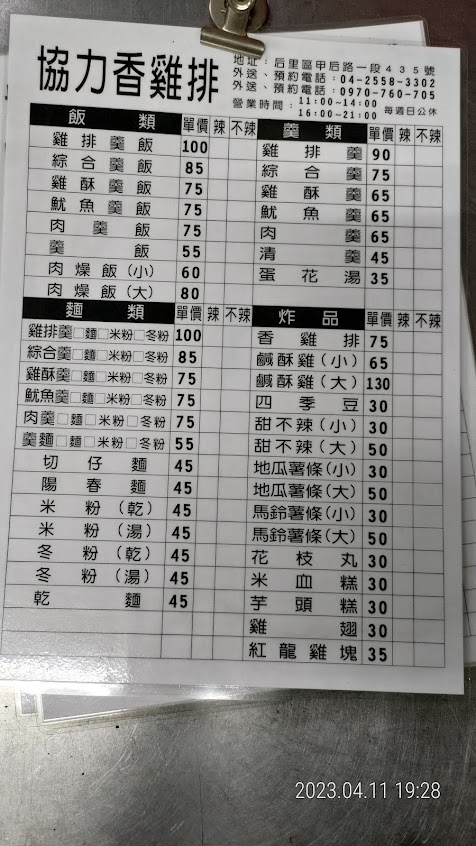 協力香雞排
地址：后里區甲后路一段435號
外送、預約電話：04-2558-3302
外送、預約電話：0970-760-705
營業時間：11:00~14:00
16:00~21:00 每週日公休
飯類 單價 辣 不辣
雞排羹飯 100
綜合羹飯 85
雞酥羹飯 75
魷魚羹飯 75
肉羹飯 75
羹飯 55
肉燥飯(小) 60
肉燥飯(大) 80
麵類 單價 辣 不辣
雞排羹□麵□米粉□冬粉 100
綜合羹□麵□米粉□冬粉 85
雞酥羹□麵□米粉□冬粉 75
魷魚羹□麵□米粉□冬粉 75
肉羹□麵□米粉□冬粉 75
羹麵□麵□米粉□冬粉 55
切仔麵 45
陽春麵 45
米粉(乾) 45
米粉(湯) 45
冬粉(乾) 45
冬粉(湯) 45
乾麵 45
羹類 單價 辣 不辣
雞排羹 90
綜合羹 75
雞酥羹 65
魷魚羹 65
肉羹 65
清羹 45
蛋花湯 35
炸品 單價 辣 不辣
香雞排 75
鹹酥雞(小) 65
鹹酥雞(大) 130
四季豆 30
甜不辣(小) 30
甜不辣(大) 50
地瓜薯條(小) 30
地瓜薯條(大) 50
馬鈴薯條(小) 30
馬鈴薯條(大) 50
花枝丸 30
米血糕 30
芋頭糕 30
雞翅 30
紅龍雞塊 35
2023.04.11 19:28